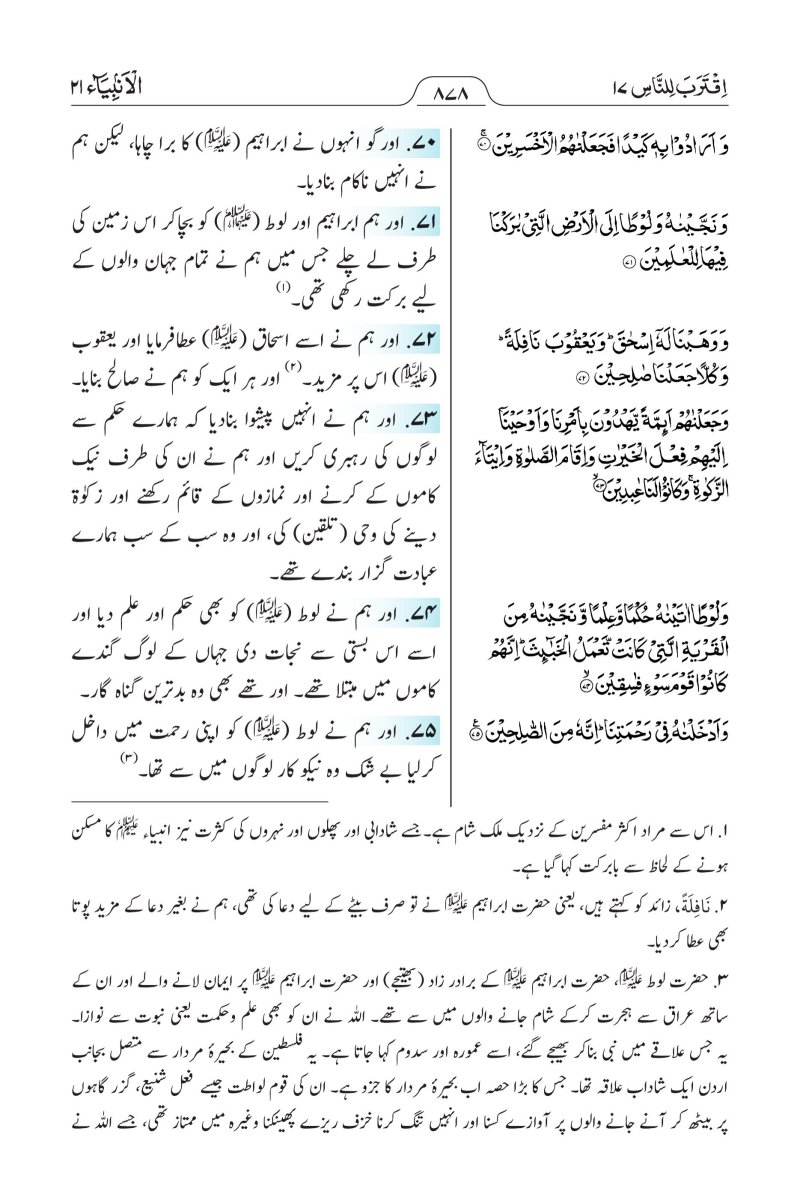 اِقْتَرَبَ لِلنَّاسِ ۱۷
۸۷۸
الْاَنْبِيَآء ۲۱
وَ اَرَادُوْا بِهٖ كَيْدًا فَجَعَلْنٰهُمُ الْاَخْسَرِيْنَ ۚ۝۷۰
وَ نَجَّيْنٰهُ وَ لُوْطًا اِلَى الْاَرْضِ الَّتِيْ بٰرَكْنَا
فِيْهَا لِلْعٰلَمِيْنَ ۝۷۱
وَ وَهَبْنَا لَهٗۤ اِسْحٰقَ ؕ وَ يَعْقُوْبَ نَافِلَةً ؕ
وَ كُلًّا جَعَلْنَا صٰلِحِيْنَ ۝۷۲
وَ جَعَلْنٰهُمْ اَىِٕمَّةً يَّهْدُوْنَ بِاَمْرِنَا وَ اَوْحَيْنَاۤ
اِلَيْهِمْ فِعْلَ الْخَيْرٰتِ وَ اِقَامَ الصَّلٰوةِ وَ اِيْتَآءَ
الزَّكٰوةِ ۚ وَ كَانُوْا لَنَا عٰبِدِيْنَ ۙ۝۷۳
وَ لُوْطًا اٰتَيْنٰهُ حُكْمًا وَّ عِلْمًا وَّ نَجَّيْنٰهُ مِنَ
الْقَرْيَةِ الَّتِيْ كَانَتْ تَّعْمَلُ الْخَبٰٓىِٕثَ ؕ اِنَّهُمْ
كَانُوْا قَوْمَ سَوْءٍ فٰسِقِيْنَ ۙ۝۷۴
وَ اَدْخَلْنٰهُ فِيْ رَحْمَتِنَا ؕ اِنَّهٗ مِنَ الصّٰلِحِيْنَ ۠۝۷۵
۷۰. اور گو انہوں نے ابراہیم (علیہ السلام) کا برا چاہا، لیکن ہم
نے انہیں ناکام بنادیا۔
۷۱. اور ہم ابراہیم اور لوط (علیہما السلام) کو بچاکر اس زمین کی
طرف لے چلے جس میں ہم نے تمام جہان والوں کے
لیے برکت رکھی تھی۔(۱)
۷۲. اور ہم نے اسے اسحاق (علیہ السلام) عطافرمایا اور یعقوب
(علیہ السلام) اس پر مزید۔(۲) اور ہر ایک کو ہم نے صالح بنایا۔
۷۳. اور ہم نے انہیں پیشوا بنادیا کہ ہمارے حکم سے
لوگوں کی رہبری کریں اور ہم نے ان کی طرف نیک
کاموں کے کرنے اور نمازوں کے قائم رکھنے اور زکوٰۃ
دینے کی وحی (تلقین) کی، اور وہ سب کے سب ہمارے
عبادت گزار بندے تھے۔
۷۴. اور ہم نے لوط (علیہ السلام) کو بھی حکم اور علم دیا اور
اسے اس بستی سے نجات دی جہاں کے لوگ گندے
کاموں میں مبتلا تھے۔ اور تھے بھی وہ بدترین گناہ گار۔
۷۵. اور ہم نے لوط (علیہ السلام) کو اپنی رحمت میں داخل
کرلیا بے شک وہ نیکو کار لوگوں میں سے تھا۔(۳)
۱. اس سے مراد اکثر مفسرین کے نزدیک ملک شام ہے۔ جسے شادابی اور پھلوں اور نہروں کی کثرت نیز انبیاء علیہم السلام کا مسکن
ہونے کے لحاظ سے بابرکت کہا گیا ہے۔
۲. نَافِلَةً، زائد کو کہتے ہیں، یعنی حضرت ابراہیم علیہ السلام نے تو صرف بیٹے کے لیے دعا کی تھی، ہم نے بغیر دعا کے مزید پوتا
بھی عطا کردیا۔
۳. حضرت لوط علیہ السلام، حضرت ابراہیم علیہ السلام کے برادر زاد (بھتیجے) اور حضرت ابراہیم علیہ السلام پر ایمان لانے والے اور ان کے
ساتھ عراق سے ہجرت کرکے شام جانے والوں میں سے تھے۔ اللہ نے ان کو بھی علم وحکمت یعنی نبوت سے نوازا۔
یہ جس علاقے میں نبی بناکر بھیجے گئے، اسے عمورہ اور سدوم کہا جاتا ہے۔ یہ فلسطین کے بحیرۂ مردار سے متصل بجانب
اردن ایک شاداب علاقہ تھا۔ جس کا بڑا حصہ اب بحیرۂ مردار کا جزو ہے۔ ان کی قوم لواطت جیسے فعل شنیع، گزر گاہوں
پر بیٹھ کر آنے جانے والوں پر آوازے کسنا اور انہیں تنگ کرنا خزف ریزے پھینکنا وغیرہ میں ممتاز تھی، جسے اللہ نے